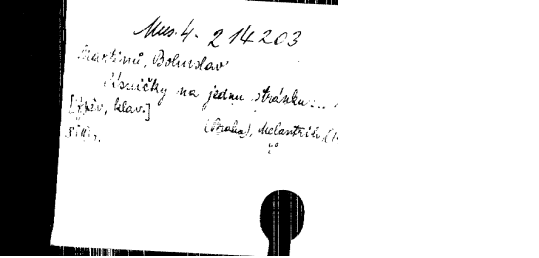 Mus. 4. 214203
Martinů, Bohuslav
Písničky na jednu stránku...
[Zpěv, klav.]
(Praha), Melantrich,